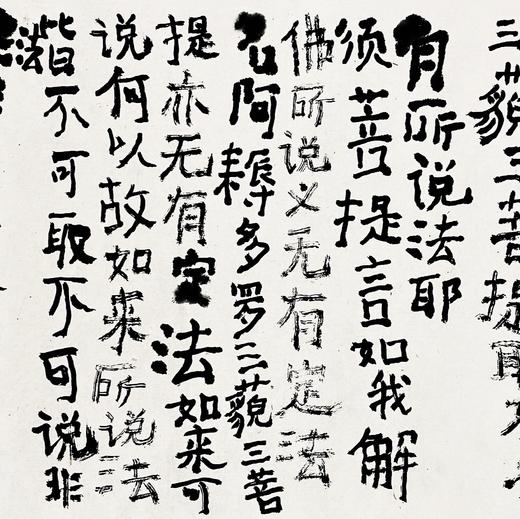 三藐三菩提耶
有所说法耶
须菩提言如我解
佛所说义无有定法
名阿耨多罗三藐三菩
提亦无有定法如来可
说何以故如来所说法
皆不可取不可说非
法